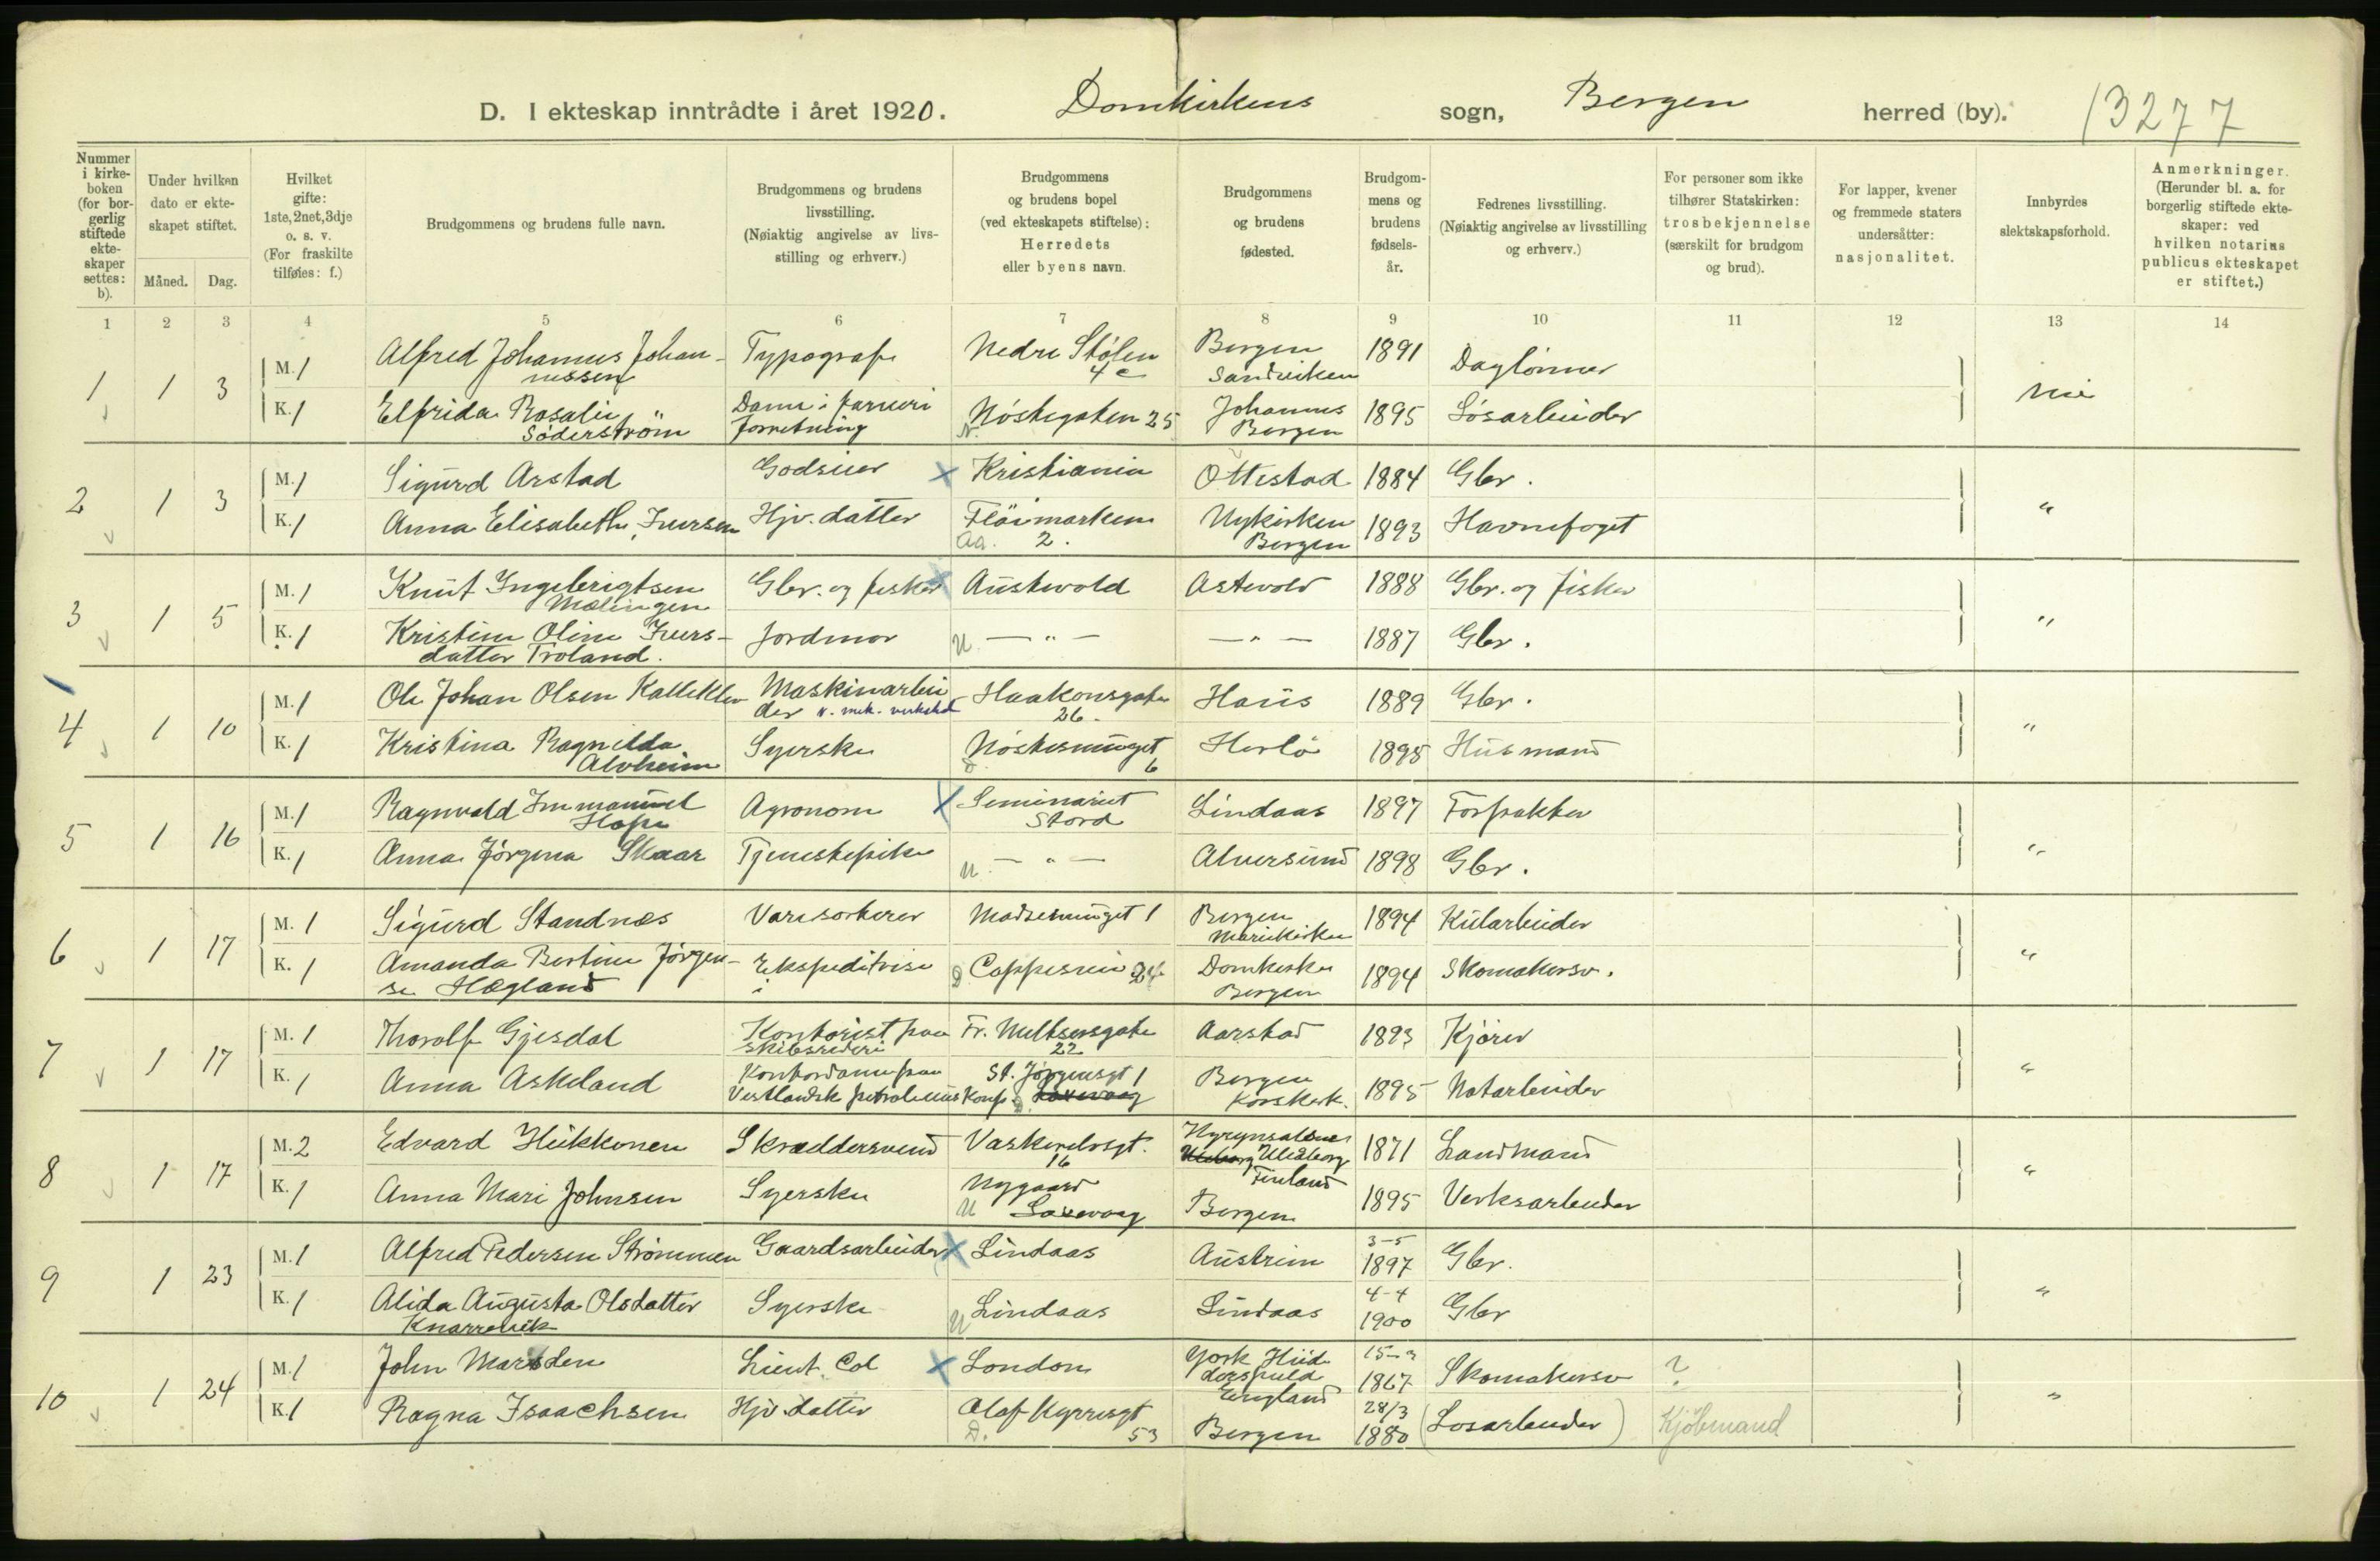 D. I ekteskap inntrådte i året 1920. Domkirkens sogn, Bergen herred (by). 13277
Nummer i kirke-boken (for bor-gerlig stiftede ekte-skaper settes: b).
Under hvilken dato er ekte-skapet stiftet.
Måned. Dag.
Hvilket gifte: 1ste, 2net, 3dje o. s. v. (For fraskilte tilføies: f.)
Brudgommens og brudens fulle navn.
Brudgommens og brudens livsstilling. (Nøiaktig angivelse av livs-stilling og erhverv.)
Brudgommens og brudens bopel (ved ekteskapets stiftelse): Herredets eller byens navn.
Brudgommens og brudens fødested.
Brudgom-mens og brudens fødsels-år.
Fedrenes livsstilling. (Nøiaktig angivelse av livsstilling og erhverv.)
For personer som ikke tilhører Statskirken: trosbekjennelse (særskilt for brudgom og brud).
For lapper, kvener og fremmede staters undersåtter: nasjonalitet.
Innbyrdes slektskapsforhold.
Anmerkninger. (Herunder bl. a. for borgerlig stiftede ekte-skaper: ved hvilken notarius publicus ekteskapet er stiftet.)
1 2 3 4 5 6 7 8 9 10 11 12 13 14
1 1 3 M. 1 Alfred Johannes Johan-nessen Typograf Nedre Stölen 4c Bergen Sandviken 1891 Daglönner nei
K. 1 Elfrida Rosalie Söderström Dame i farveri forretning Nöstegaten 25 N. Johannes Bergen 1895 Lösarbeider
2 1 3 M. 1 Sigurd Arstad Godseier x Kristiania Ottestad 1884 Gbr. "
K. 1 Anna Elisabeth Iversen Hjv. datter Flöimarken 2. Aa. Nykirken Bergen 1893 Havnefoget
3 1 5 M. 1 Knut Ingebrigtsen Mælingen Gbr. og fisker x Austevold Astevold 1888 Gbr. og fisker "
K. 1 Kristine Oline Ivers-datter Troland. Jordmor U. — " — — " — 1887 Gbr.
4 1 10 M. 1 Ole Johan Olsen Kalleklev Maskinarbei der v. mek. verksted Haakonsgaten 26. Haus 1889 Gbr. "
K. 1 Kristina Ragnilda Alvheim Syerske Nöstesmuget 6 D. Herlö 1895 Husmand
5 1 16 M. 1 Ragnvald Immanuel Hope Agronom x Seminariet Stord Lindaas 1897 Forpakter "
K. 1 Anna Jörgina Skaar Tjenestepike U. — " — Alversund 1898 Gbr.
6 1 17 M. 1 Sigurd Standnes Varesorterer Madsesmuget 1 Bergen Mariekirken 1894 Kularbeider "
K. 1 Amanda Bertine Jörgen-se Hægland Ekspeditrise i D Coppesmei 24 Domkirke Bergen 1894 Skomakersv.
7 1 17 M. 1 Thorolf Gjesdal Kontorist paa skibsrederi Fr. Meltzersgate 22 Aarstad 1893 Kjörer "
K. 1 Anna Askeland Kontordame paa Vestlandsk petroleums komp. St. Jörgensgt 1 Laxevaag Bergen Korskirk. 1895 Notarbeider
8 1 17 M. 2 Edvard Heikkonen Skræddersvend Vaskerelvsgt. 16 Hyrynsalmi Uleaborg Finland 1871 Landmand "
K. 1 Anna Mari Johnsen Syerske Nygaard U Laxevaag Bergen 1895 Verksarbeider
9 1 23 M. 1 Alfred Pedersen Strömmen Gaardsarbeider x Lindaas Austreim 3-5 1897 Gbr. "
K. 1 Alida Augusta Olsdatter Knarrevik Syerske U Lindaas Lindaas 4-4 1900 Gbr
10 1 24 M. 1 John Marsden Lieut. Col x London York Hud dersfield England 1867 Skomakersv ? "
K. 1 Ragna Isaachsen Hjv. datter Olaf Kyrresgt 53 D. Bergen 28/3 1880 (Losarbeider) Kjöbmand